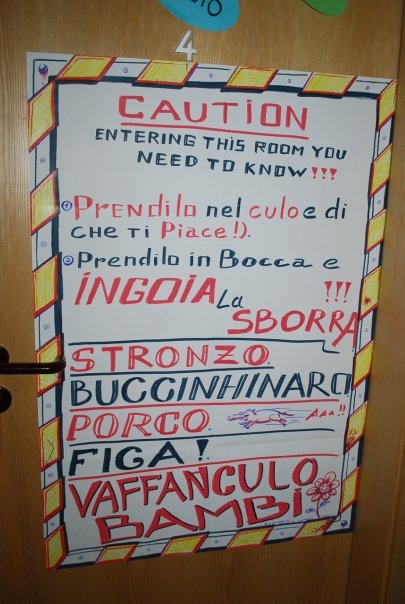 4
CAUTION
ENTERING THIS ROOM YOU
NEED TO KNOW!!!
① Prendilo nel culo e di
che ti Piace!).
② Prendilo in Bocca e
iNGOiA La !!!
SBORRA
STRONZO.
BUCCINHINARO
PORCO. AAA!!
FiGA!
VAFFANCULO
BAMBi